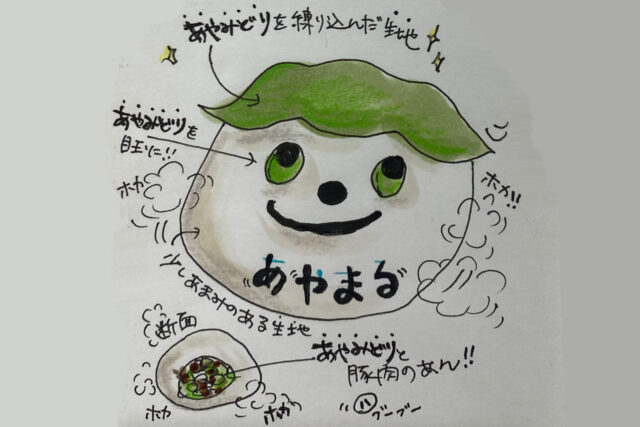 あやみどりを練り込んだ生地
あやみどりを
目玉に!!
ホカ
ホカ!!
少しあまみのある生地
あやまる
断面
あやみどりと
豚肉のあん!!
ホカ
ホカ
ブーブー